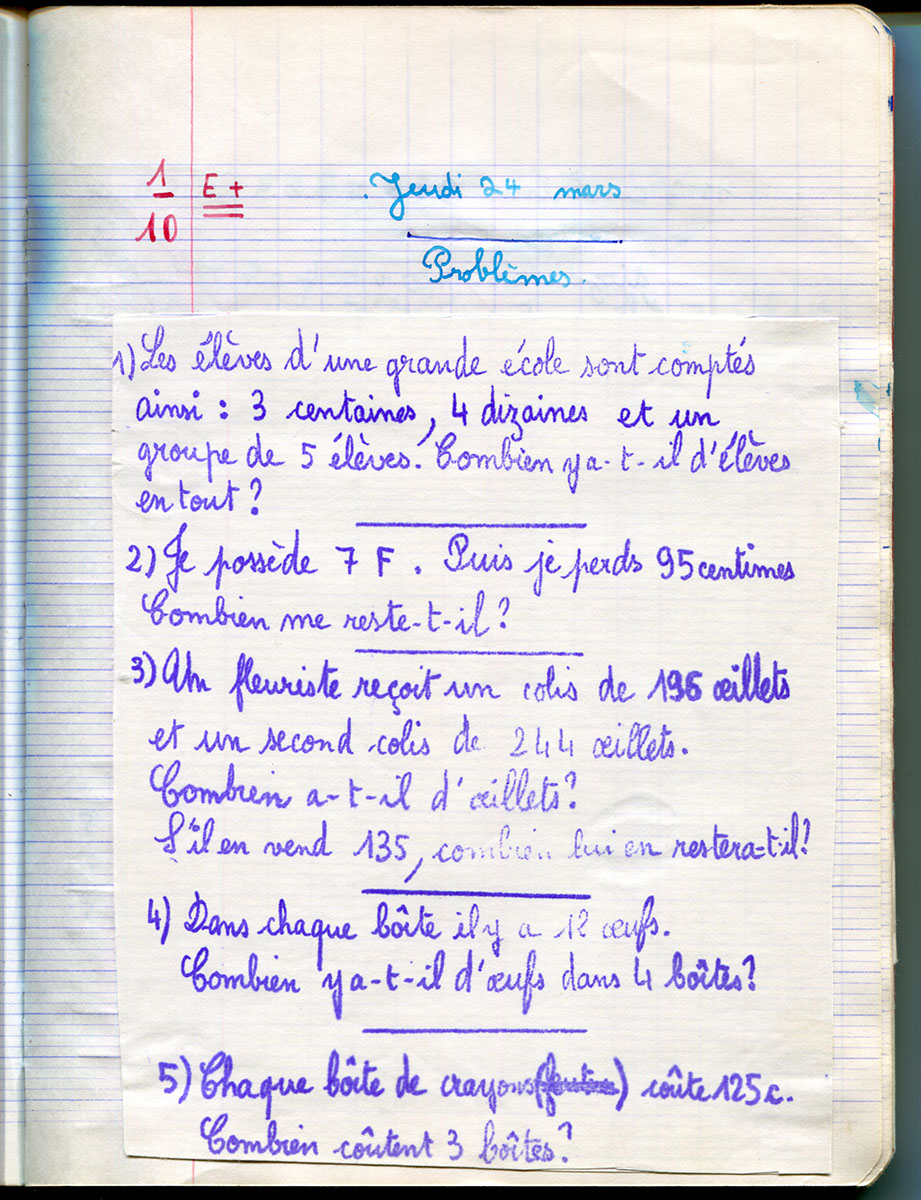 1
10
E +
Jeudi 24 mars
Problèmes.
1) Les élèves d'une grande école sont comptés
ainsi : 3 centaines, 4 dizaines et un
groupe de 5 élèves. Combien y a-t-il d'élèves
en tout ?
2) Je possède 7 F. Puis je perds 95 centimes
Combien me reste-t-il ?
3) Un fleuriste reçoit un colis de 196 œillets
et un second colis de 244 œillets.
Combien a-t-il d'œillets ?
S'il en vend 135, combien lui en restera-t-il ?
4) Dans chaque boîte il y a 12 œufs.
Combien y a-t-il d'œufs dans 4 boîtes ?
5) Chaque boîte de crayons ( ) coûte 125 c.
Combien coûtent 3 boîtes ?